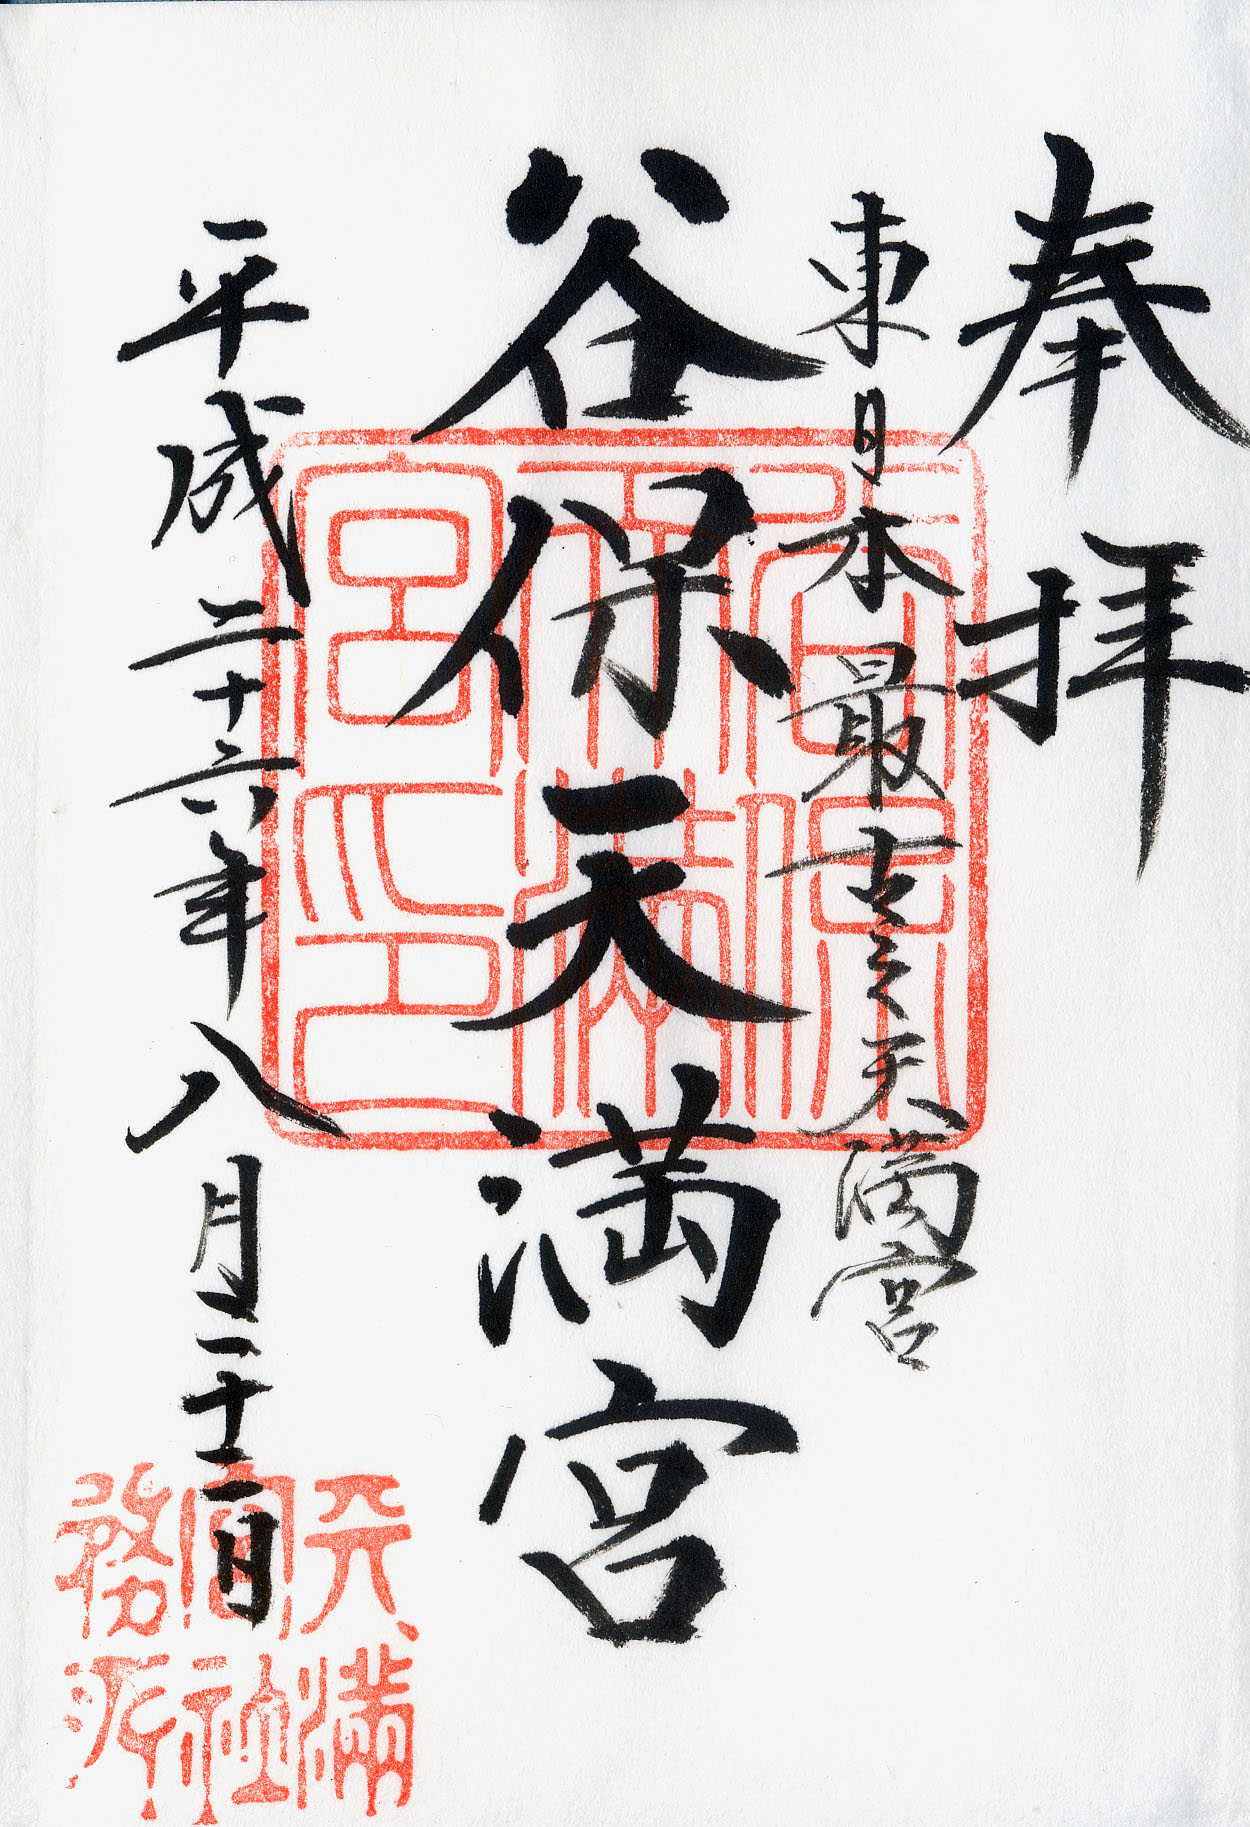 奉拝
東日本最古之天満宮
谷保天満宮
平成二十六年八月二十二日
谷保天満宮印
天満宮社務所